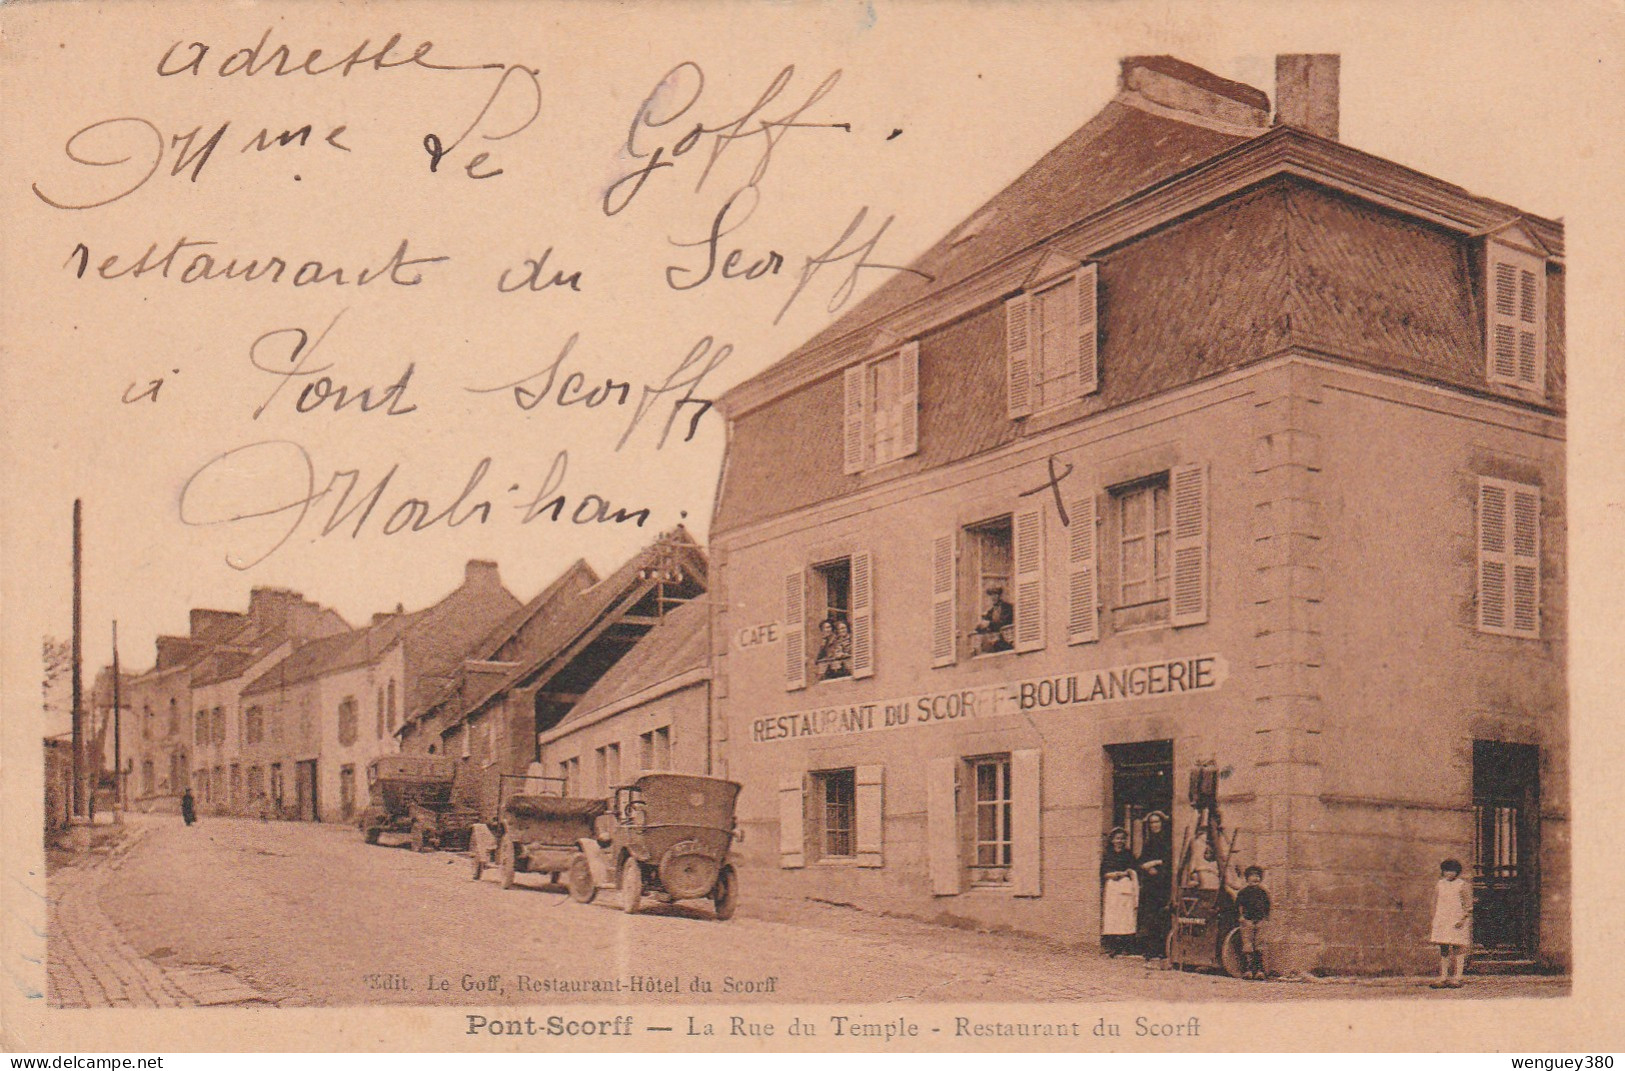 adresse
Mme Le Goff.
restaurant du Scorff
à Pont Scorff
Morbihan.
CAFÉ
RESTAURANT DU SCORFF-BOULANGERIE
Edit. Le Goff, Restaurant-Hôtel du Scorff
Pont-Scorff — La Rue du Temple - Restaurant du Scorff
https://www.delcampe.net
wenguey380